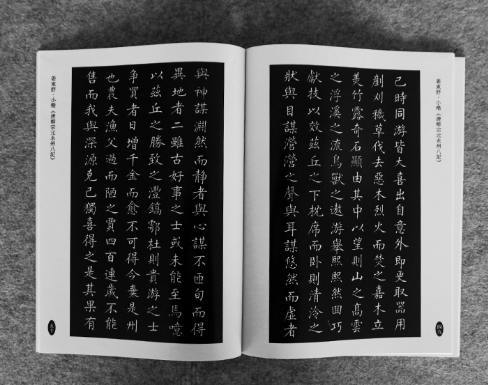 姜東舒·小楷《唐柳宗元永州八記》
己時同游皆大喜出自意外即更取器用
剷刈穢草伐去惡木烈火而焚之嘉木立
美竹露奇石顯由其中以望則山之高雲
之浮溪之流鳥獸之遨游舉熙熙然回巧
獻技以效茲丘之下枕席而臥則清泠之
狀與目謀瀯瀯之聲與耳謀悠然而虛者
與神謀淵然而靜者與心謀不匝旬而得
異地者二雖古好事之士或未能至焉噫
以茲丘之勝致之灃鎬鄠杜則貴游之士
爭買者日增千金而愈不可得今棄是州
也農夫漁父過而陋之賈四百連歲不能
售而我與深源克己獨喜得之是其果有
姜東舒·小楷《唐柳宗元永州八記》